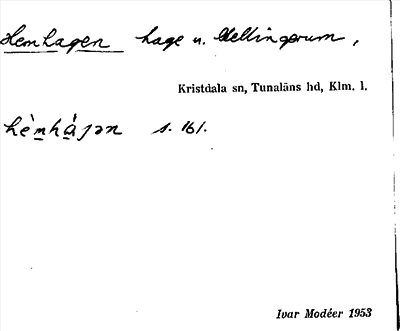 Hemhagen hage u. Mellingerum,
Kristdala sn, Tunaläns hd, Klm. l.
hè̀mhá̀ɡən s. 161.
Ivar Modéer 1953